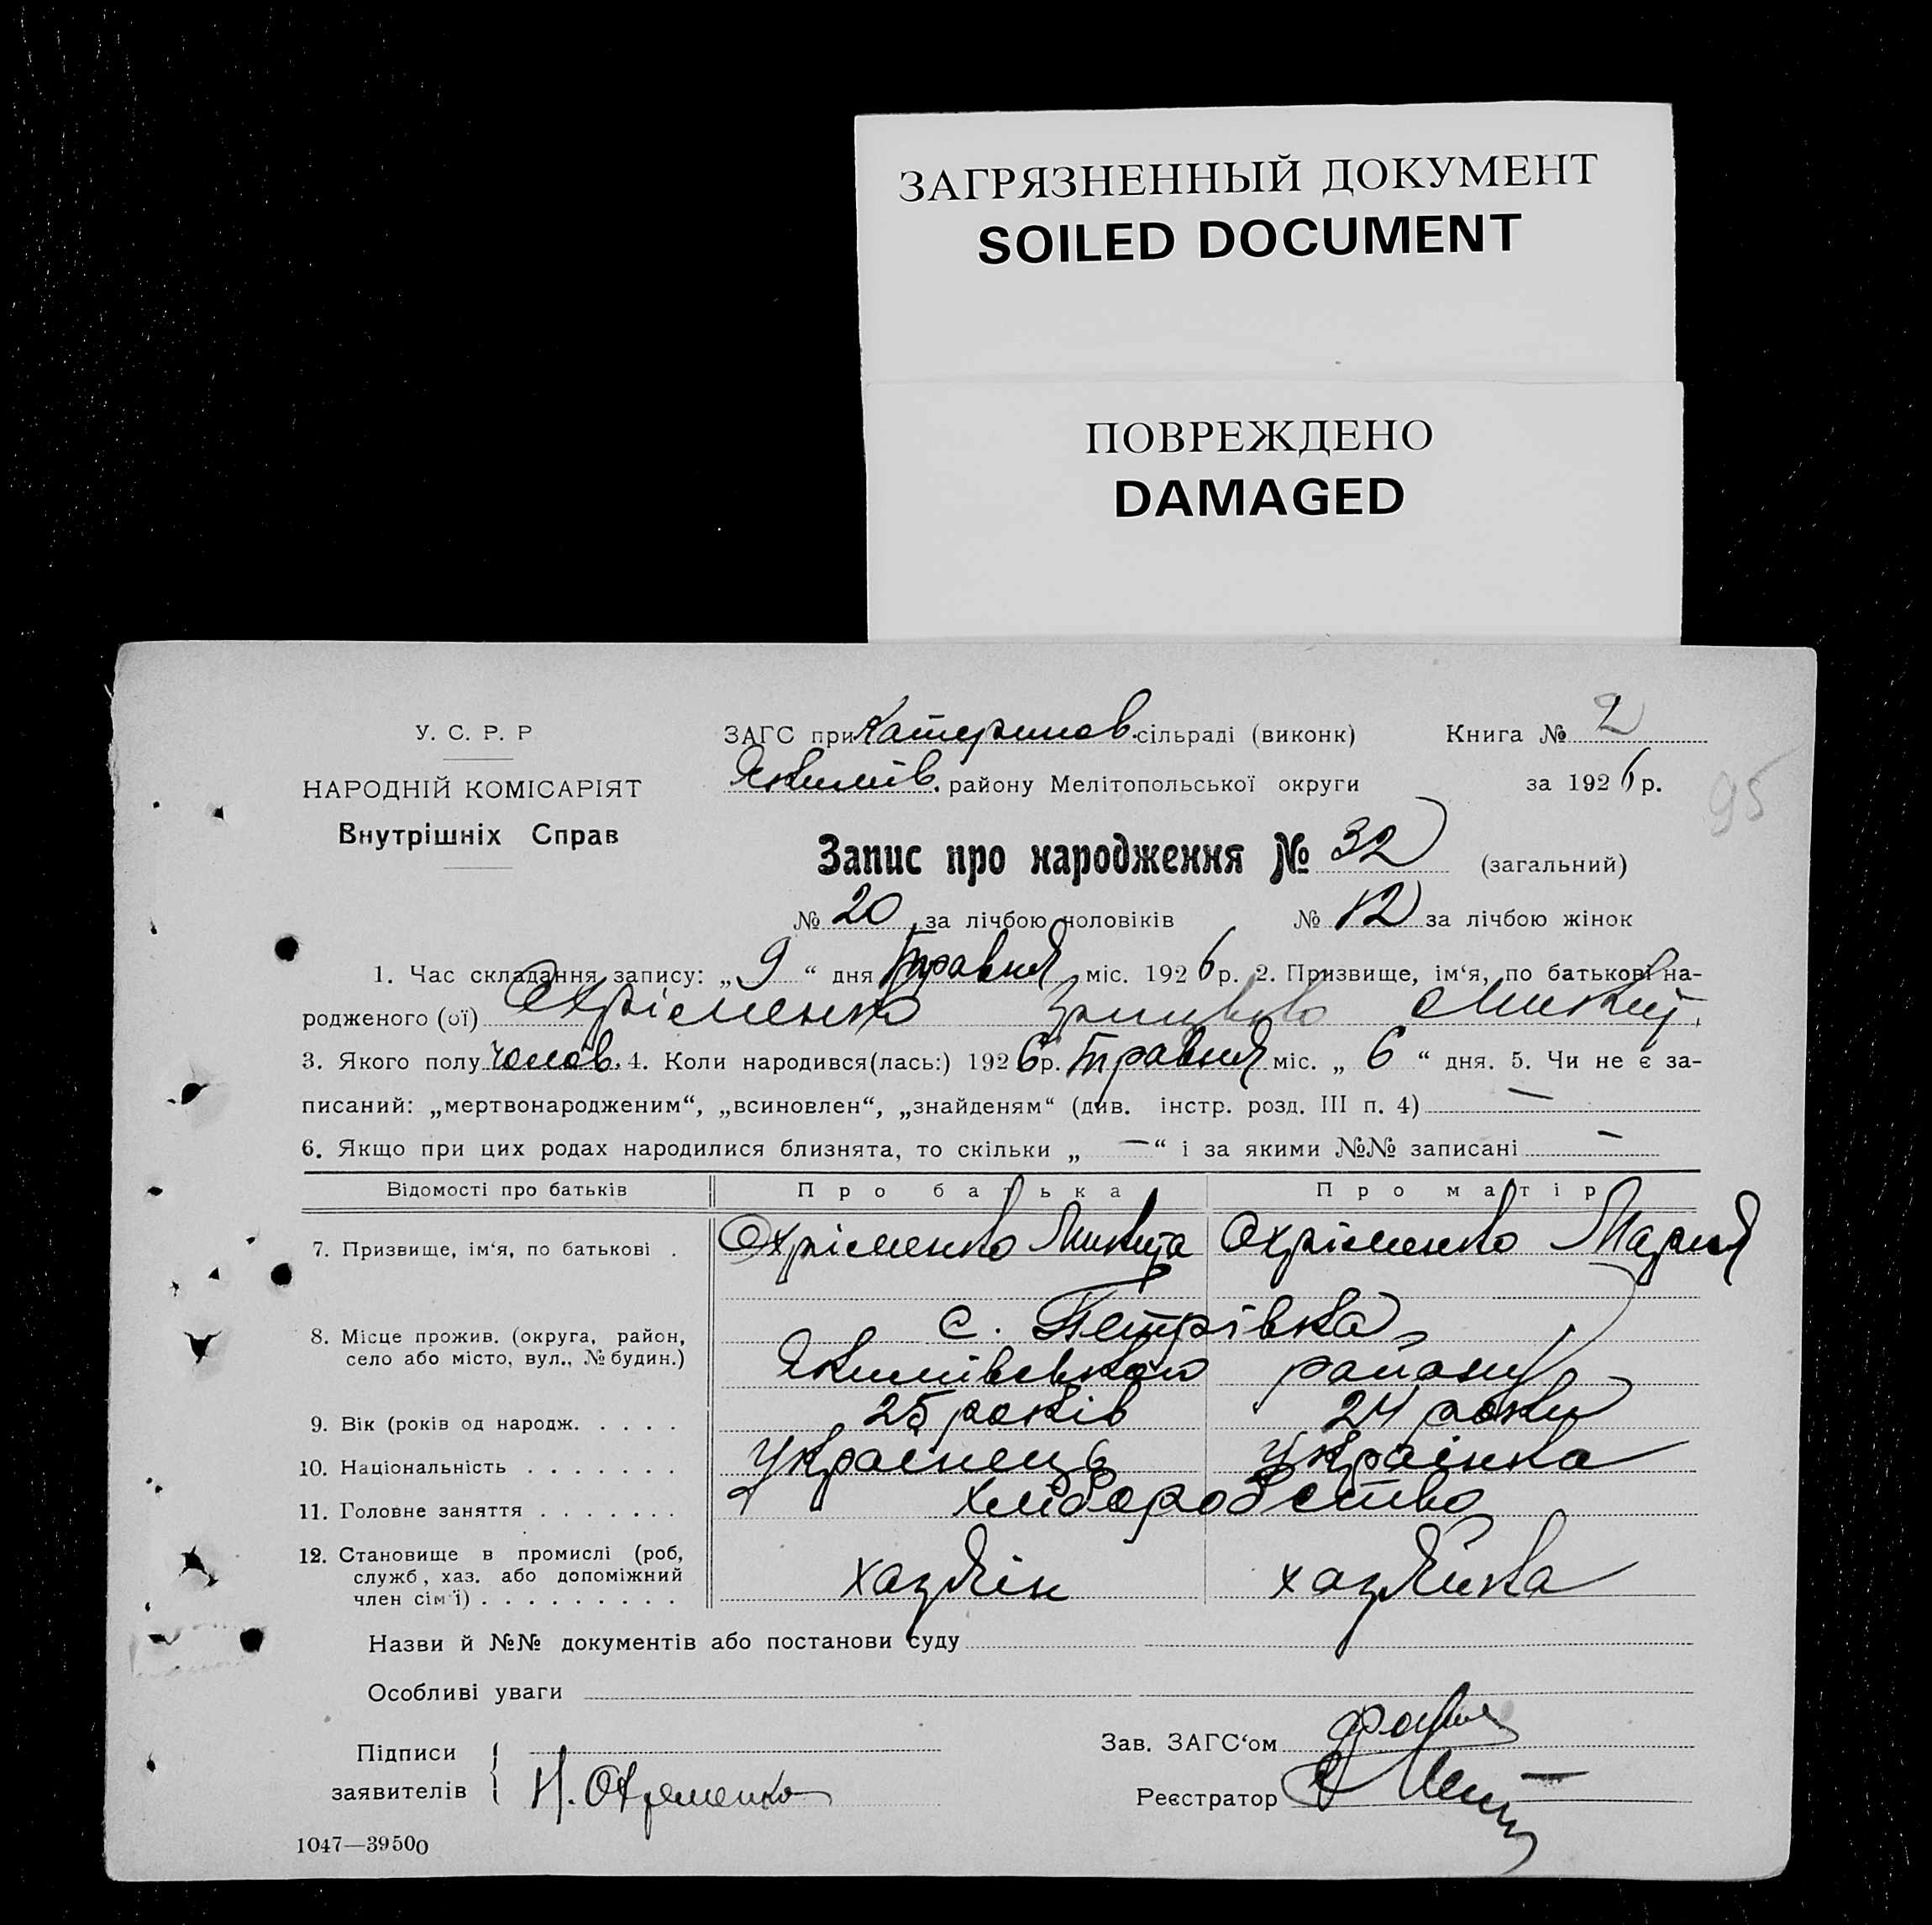 ЗАГРЯЗНЕННЫЙ ДОКУМЕНТ
SOILED DOCUMENT
ПОВРЕЖДЕНО
DAMAGED
У. С. Р. Р
НАРОДНІЙ КОМІСАРІЯТ
Внутрішніх Справ
ЗАГС при Катеринов. сільраді (виконк)
Якимів. району Мелітопольської округи
Книга № 2
за 1926 р.
95
Запис про народження № 32 (загальний)
№ 20 за лічбою чоловіків № 12 за лічбою жінок
1. Час складання запису: „ 9 “ дня Травня міс. 1926 р. 2. Призвище, ім‘я, по батькові на-
родженого (ої) Охріменко Микит.
3. Якого полу чолов. 4. Коли народився(лась:) 1926 р. Травня міс. „ 6 “ дня. 5. Чи не є за-
писаний: „мертвонародженим“, „всиновлен“, „знайденям“ (див. інстр. розд. III п. 4) —
6. Якщо при цих родах народилися близнята, то скільки „ — “ і за якими №№ записані —
Відомості про батьків Про батька Про матір
7. Призвище, ім‘я, по батькові . Охріменко Микита Охріменко Мария
8. Місце прожив. (округа, район, с. Петрівка,
село або місто, вул., № будин.) Якимівського району
9. Вік (років од народж. . . . . 25 років 24 роки
10. Національність . . . . . . . Українець Українка
11. Головне заняття . . . . . . . хліборобство
12. Становище в промислі (роб,
служб, хаз. або допоміжний
член сім‘ї) . . . . . . . . . хазяін хазяйка
Назви й №№ документів або постанови суду
Особливі уваги
Підписи
заявителів Н. Охременко
Зав. ЗАГС‘ом
Реєстратор
1047—39500